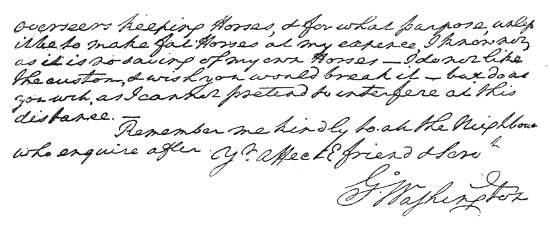 overseers keeping Horses, & for what purpose, unless
it be to make fat Horses at my expence, I know not,
as it is no saving of my own Horses — I do not like
the custom, & wish you would break it — but do as
you will, as I cannot pretend to interfere at this
distance. —
Remember me kindly to all the Neighbours
who enquire after Yr. affecte friend & Servt.
Go: Washington